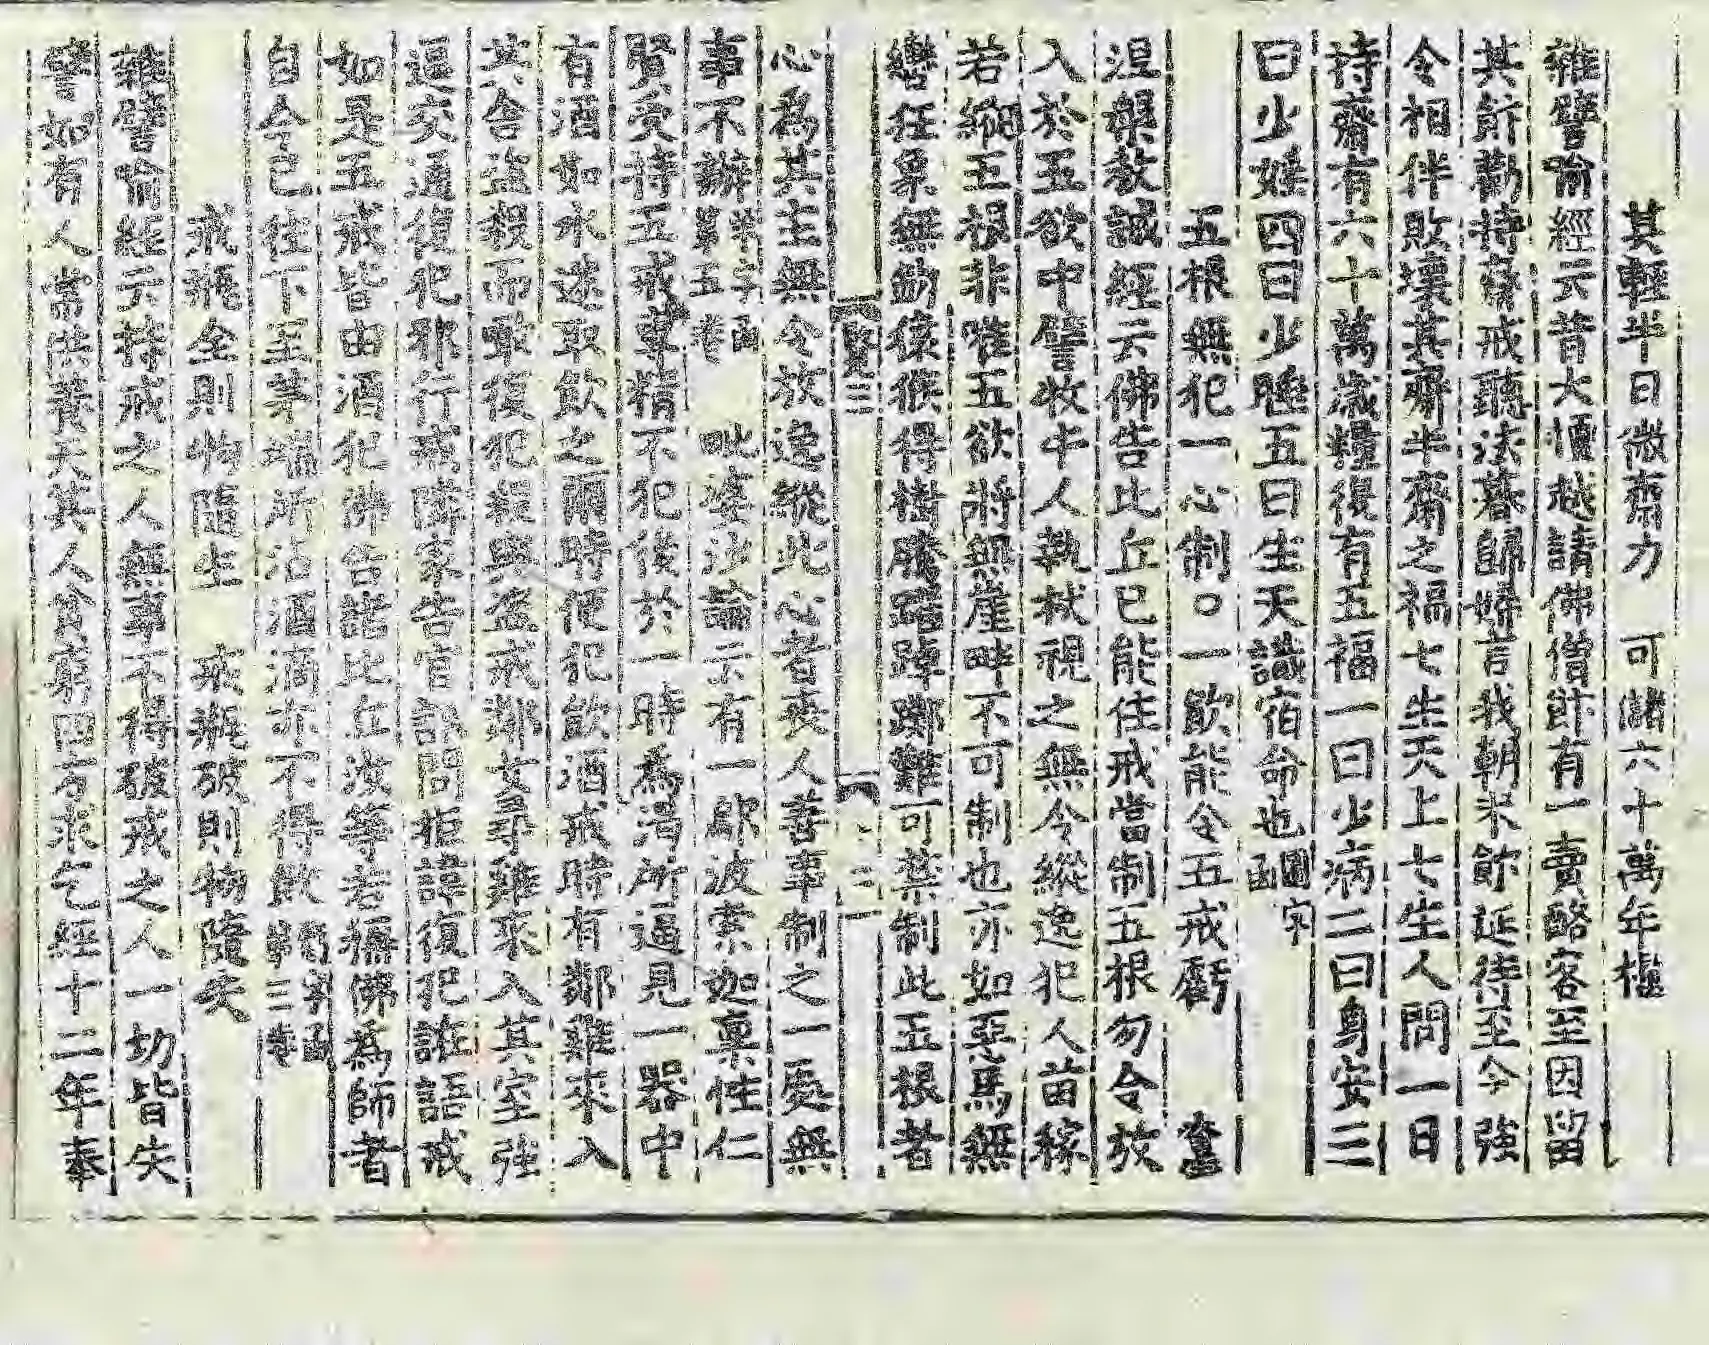 其輕半日微齋力　可儲六十萬年糧
雜譬喻經云昔大檀越請佛僧時有一賣酪客至因留
其飰勸持齋戒聽法暮歸婦言我朝未飰延待至今強
令相伴敗壞其齋半齋之福七生天上七生人間一日
持齋有六十萬歲糧復有五福一曰少病二曰身安三
曰少婬四曰少睡五曰生天識宿命也
五根無犯一心制○一飲能令五戒虧
涅槃教誡經云佛告比丘已能住戒當制五根勿令放
入於五欲中譬牧牛人執杖視之無令縱逸犯人苗稼
若縱五根非唯五欲將無崖畔不可制也亦如惡馬無
轡狂象無鉤猿猴得樹騰躍踔躑難可禁制此五根者
心為其主無令放逸縱此心者喪人善事制之一處無
事不辦 第五卷　毗婆沙論云有一鄔波索迦稟性仁
賢受持五戒專精不犯後於一時為渴所逼見一器中
有酒如水遂取飲之爾時便犯飲酒戒時有鄰雞來入
其舍盜殺而噉復犯殺與盜戒鄰女尋雞來入其室強
逼交通復犯邪行戒隣家告官訊問拒諱復犯誑語戒
如是五戒皆由酒犯佛告諸比丘汝等若稱佛為師者
自今已往下至茅端所沾酒滴亦不得飲 三卷
戒瓶全則物隨生　戒瓶破則物隨失
雜譬喻經云持戒之人無事不得破戒之人一切皆失
譬如有人常供養天其人貧窮四方求乞經十二年奉